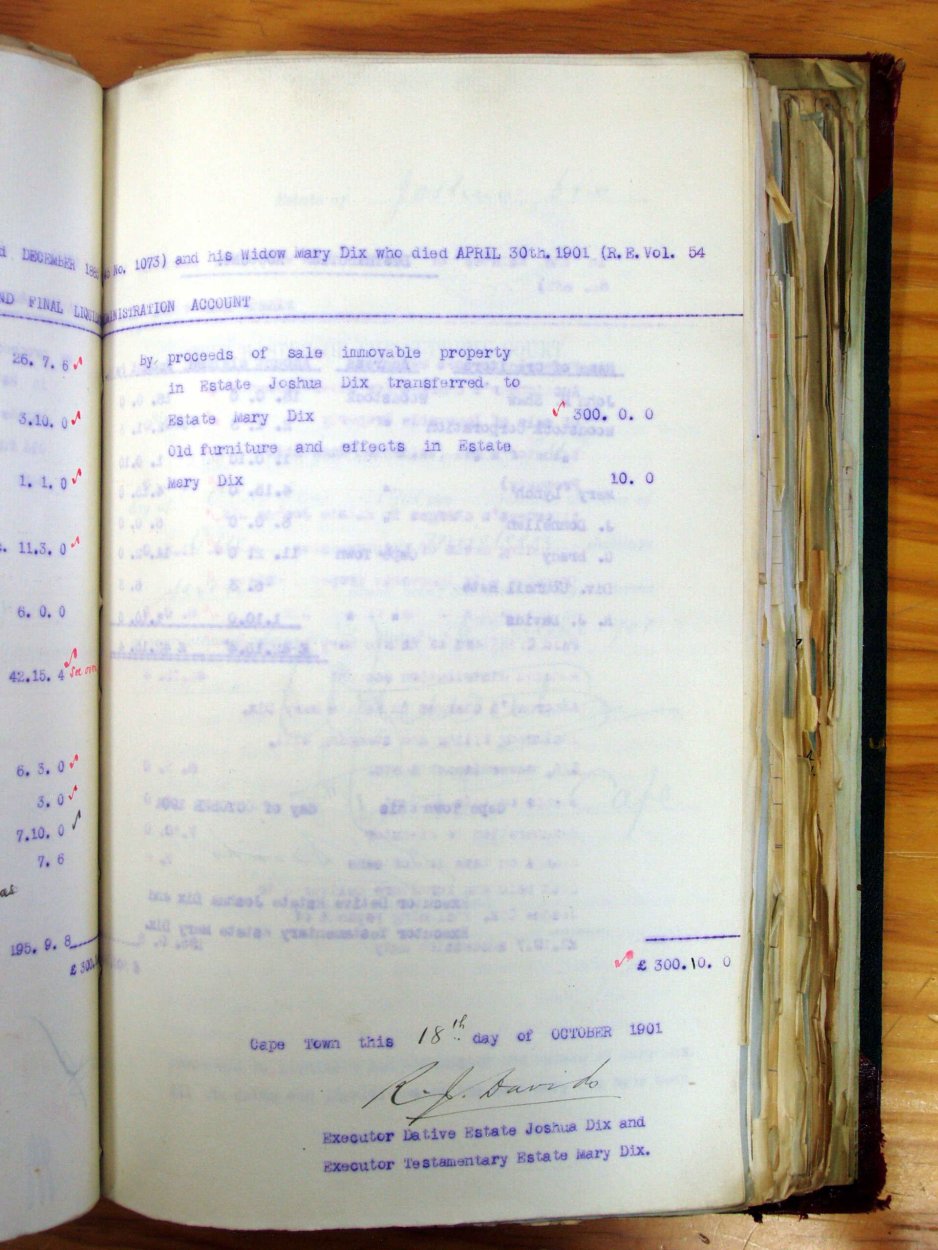 d DECEMBER 188
ND FINAL LIQUI
26. 7. 6
3.10. 0
1. 1. 0
11.3. 0
6. 0. 0
42.15. 4 See over
6. 3. 0
3. 0
7.10. 0
7. 6
as
195. 9. 8
£ 300.
No. 1073) and his Widow Mary Dix who died APRIL 30th. 1901 (R.E.Vol. 54
MINISTRATION ACCOUNT
By proceeds of sale immovable property
in Estate Joshua Dix transferred to
Estate Mary Dix 300. 0. 0
Old furniture and effects in Estate
Mary Dix 10. 0
£ 300.10. 0
Cape Town this 18th day of OCTOBER 1901
R. J. Davids
Executor Dative Estate Joshua Dix and
Executor Testamentary Estate Mary Dix.